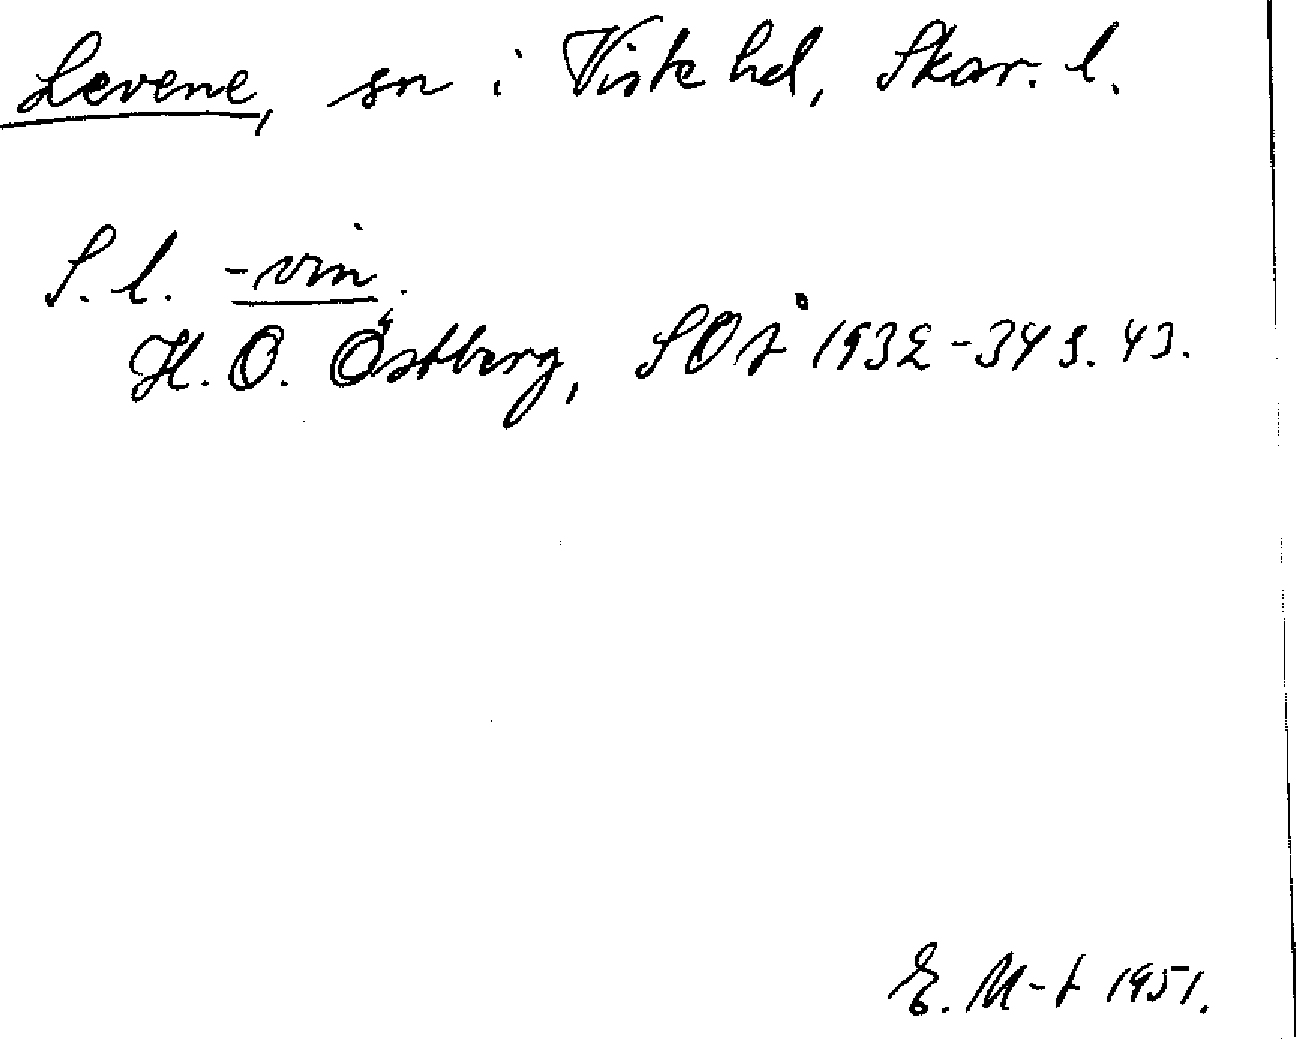 Levene, sn i Viste hd, Skar. l.
S. l. -vin.
H. O. Östberg, SOÅ 1932-34 s. 43.
E. M-t 1951.